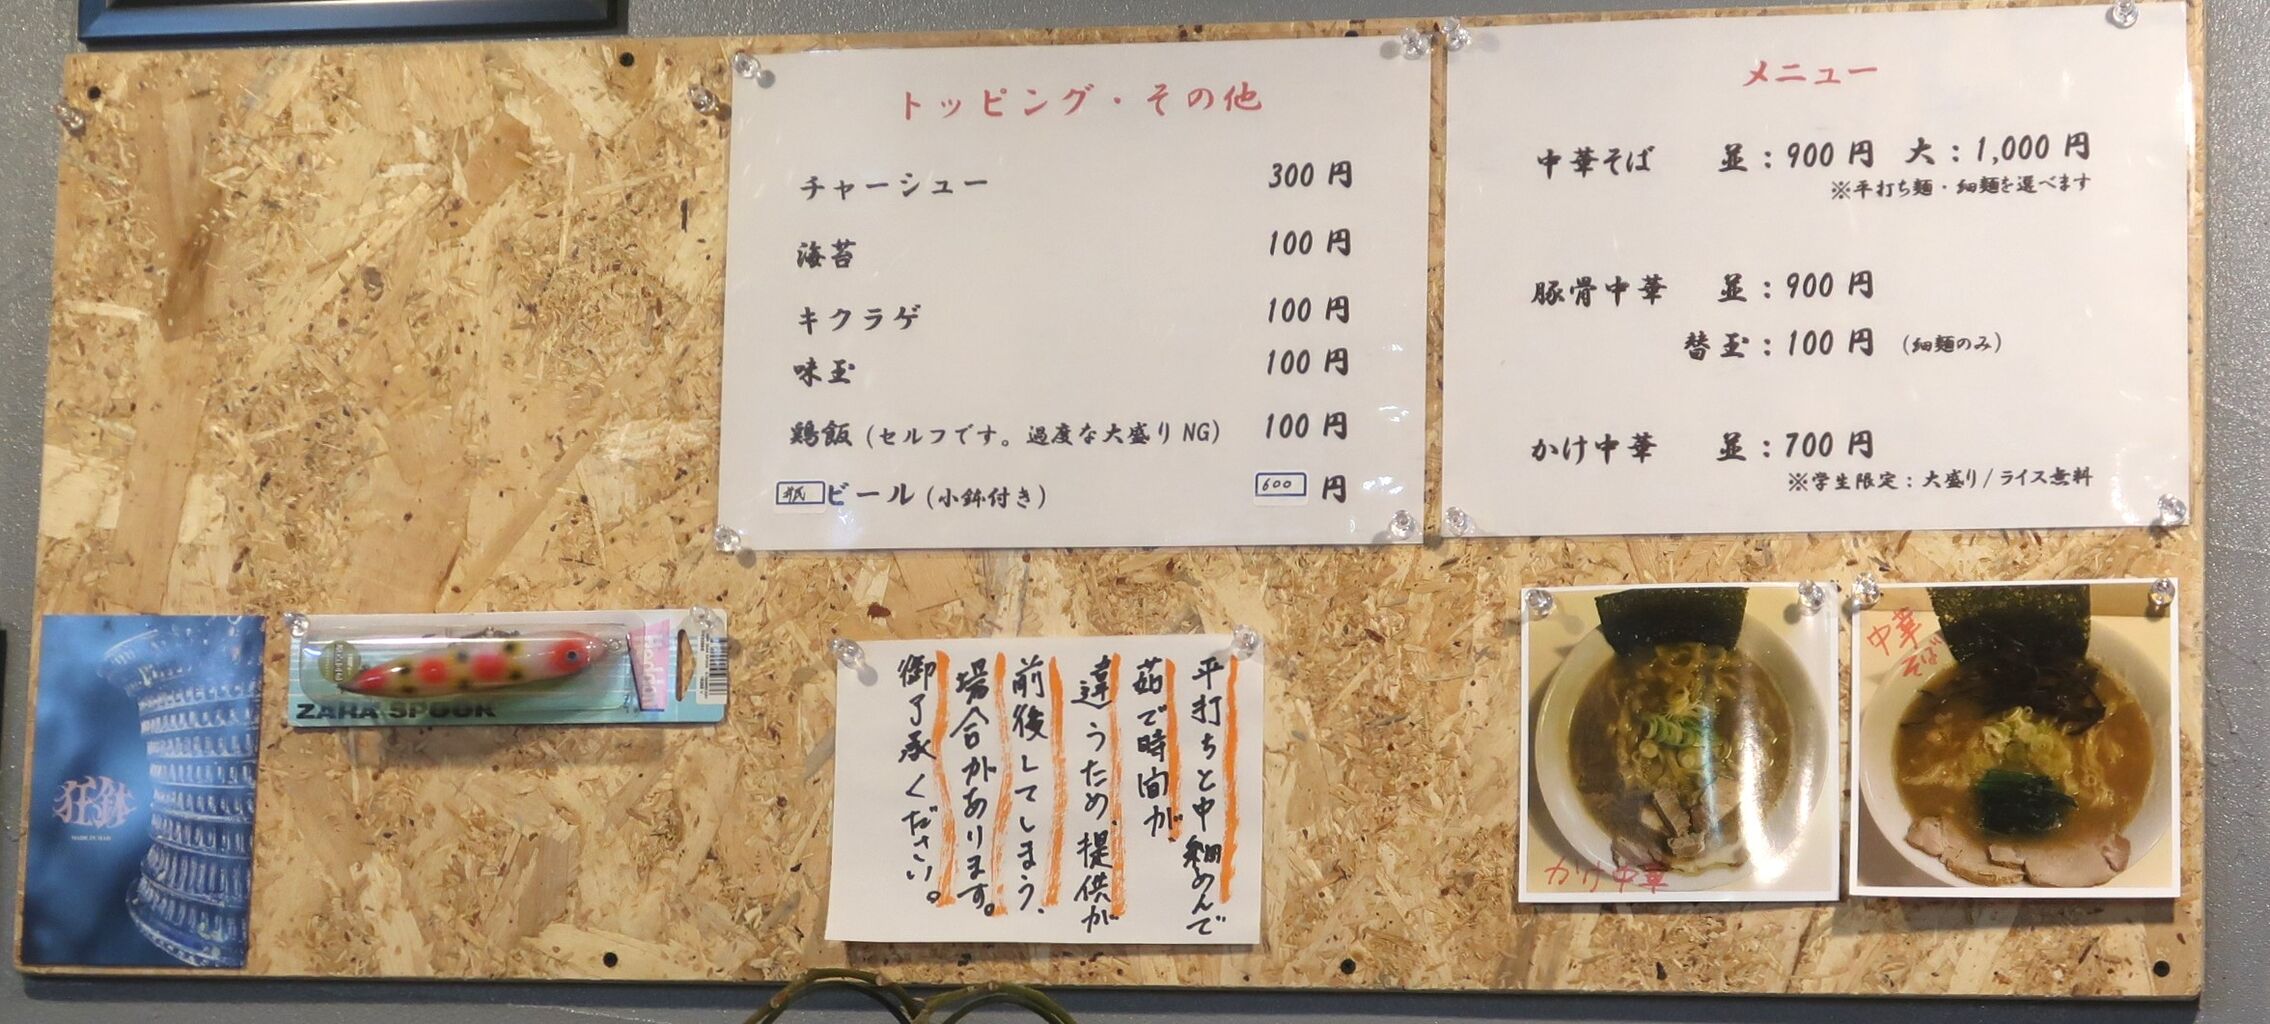 トッピング・その他
チャーシュー 300 円
海苔 100 円
キクラゲ 100 円
味玉 100 円
鶏飯 (セルフです。過度な大盛り NG) 100 円
瓶ビール (小鉢付き) 600 円
メニュー
中華そば 並：900 円 大：1,000 円
※平打ち麺・細麺を選べます
豚骨中華 並：900 円
替玉：100 円 (細麺のみ)
かけ中華 並：700 円
※学生限定：大盛り/ライス無料
狂鉢
ZARA SPOOK
Heddon
平打ちと中細めんで
茹で時間が
違うため、提供が
前後してしまう、
場合があります。
御了承ください。
かけ中華
中華
そば